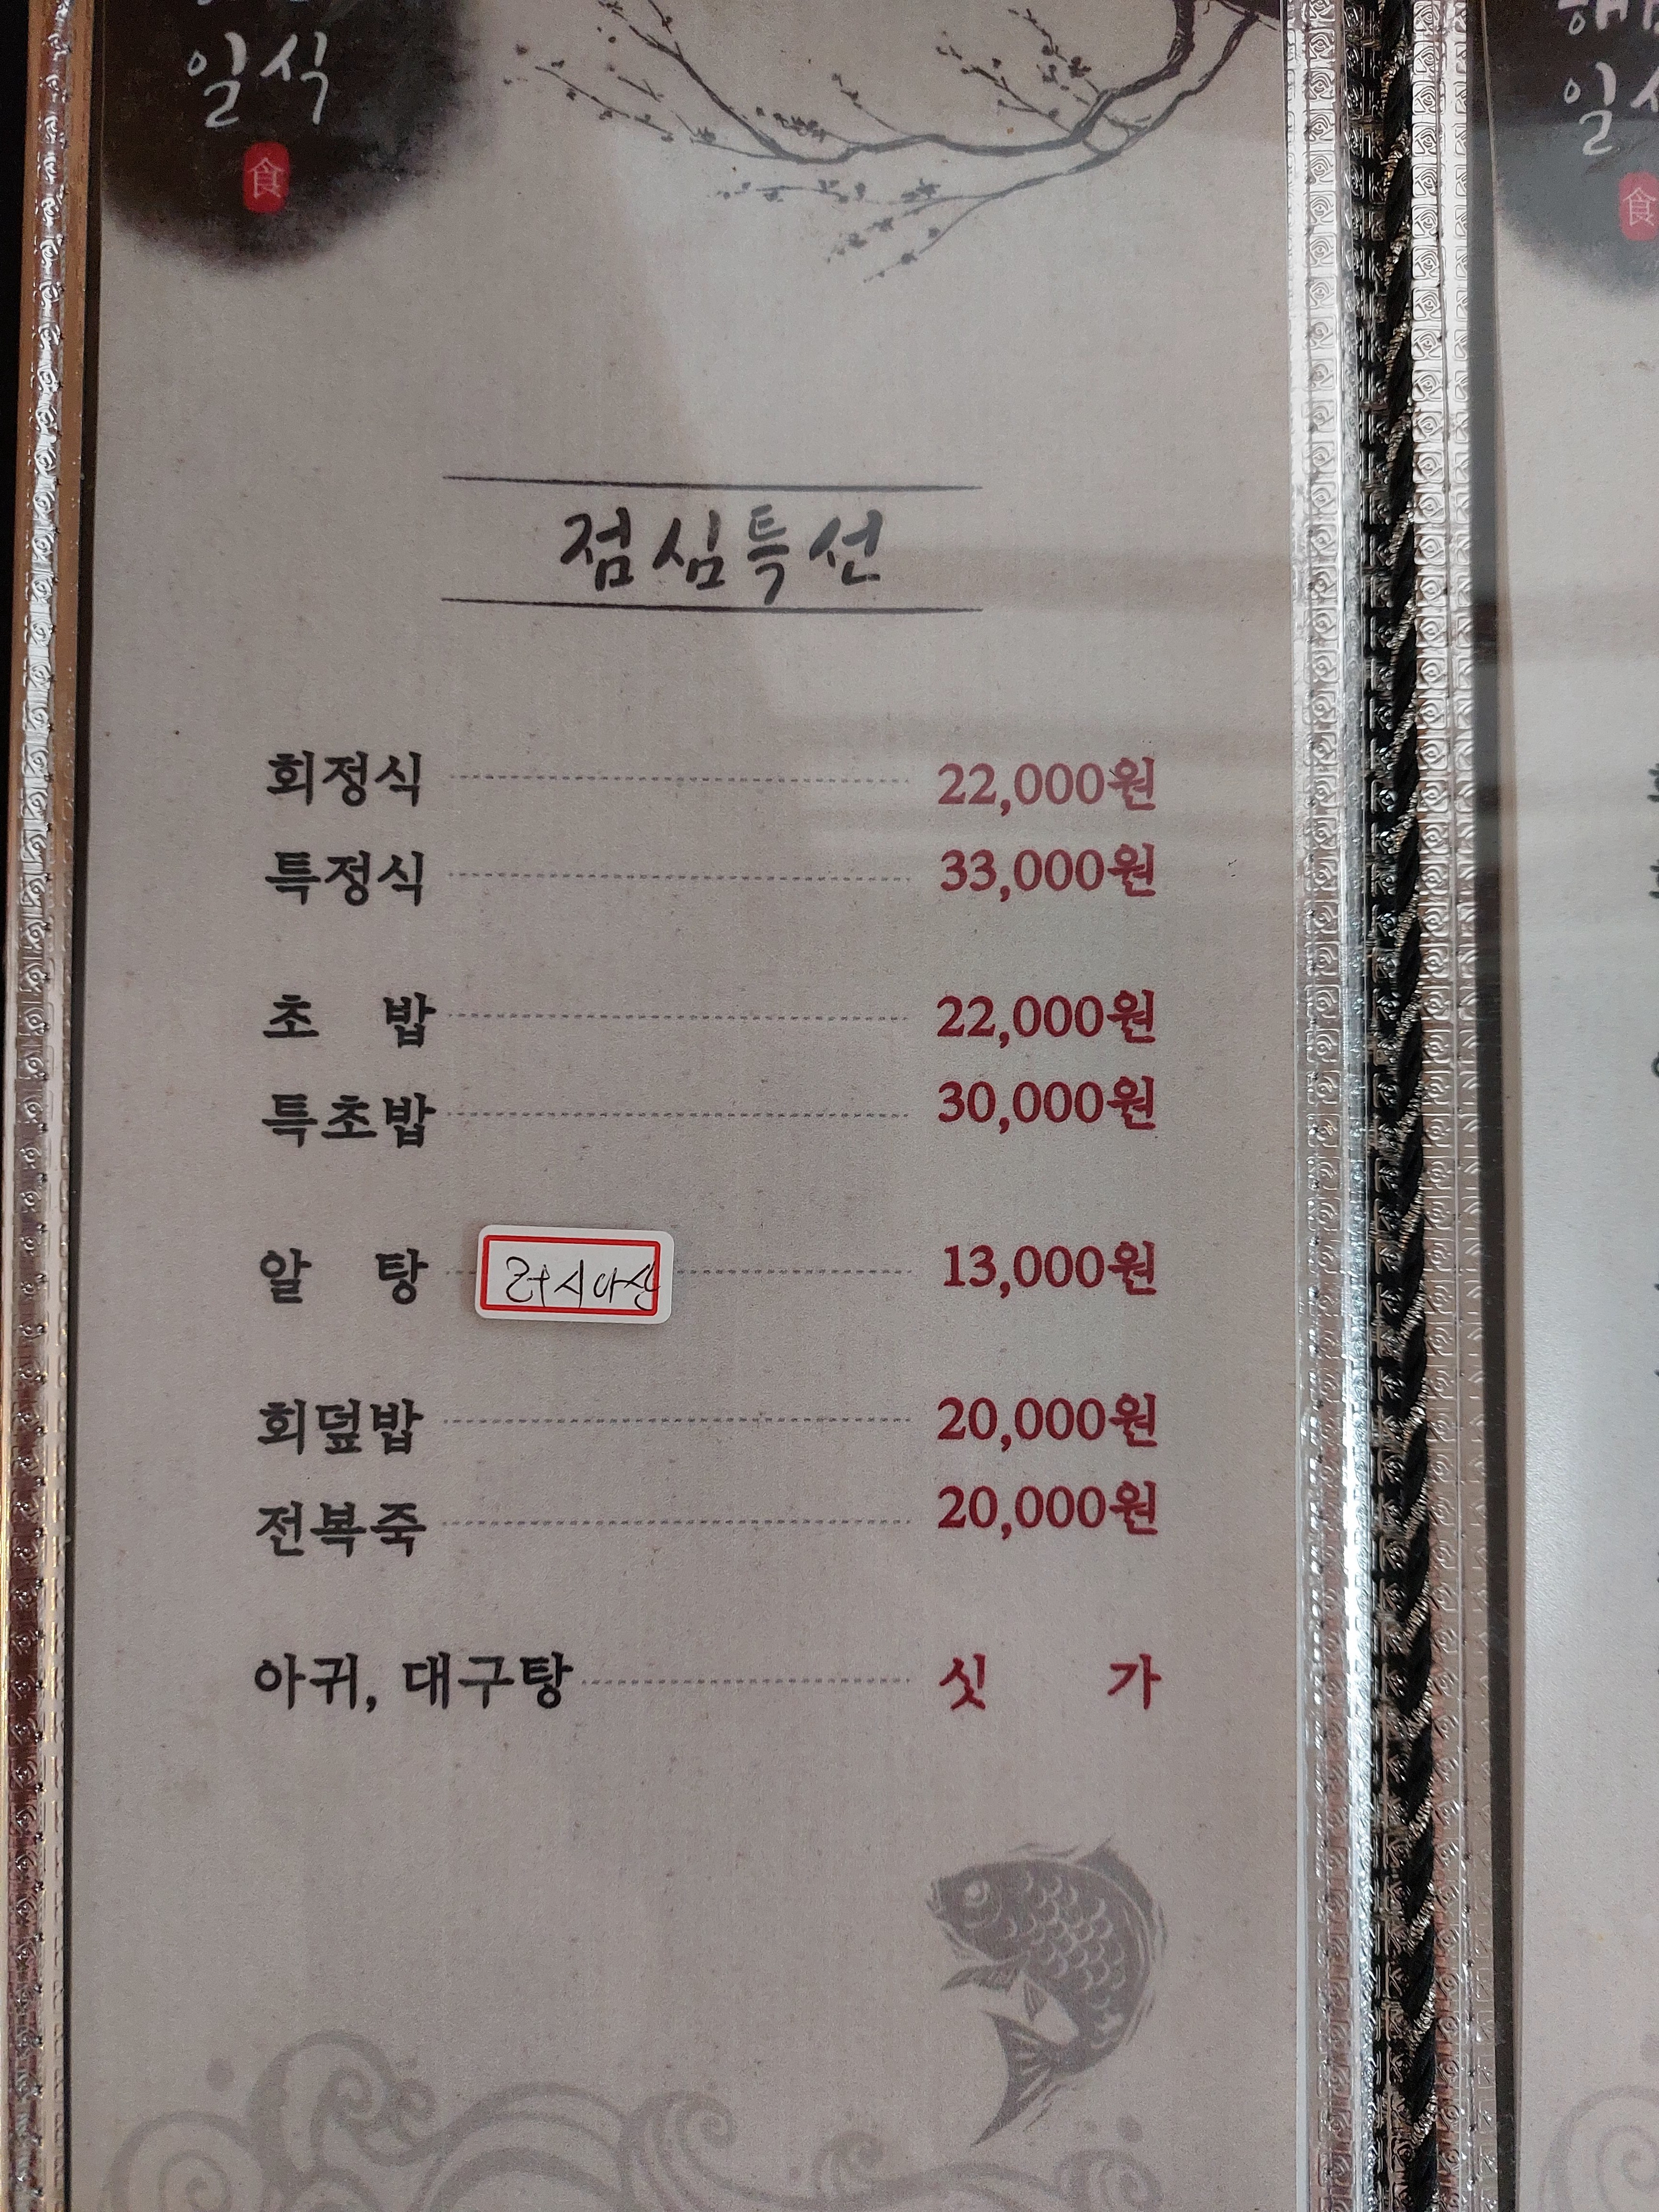 일식
食
점심특선
회정식 22,000원
특정식 33,000원
초 밥 22,000원
특초밥 30,000원
알 탕 러시아산 13,000원
회덮밥 20,000원
전복죽 20,000원
아귀, 대구탕 싯 가
食